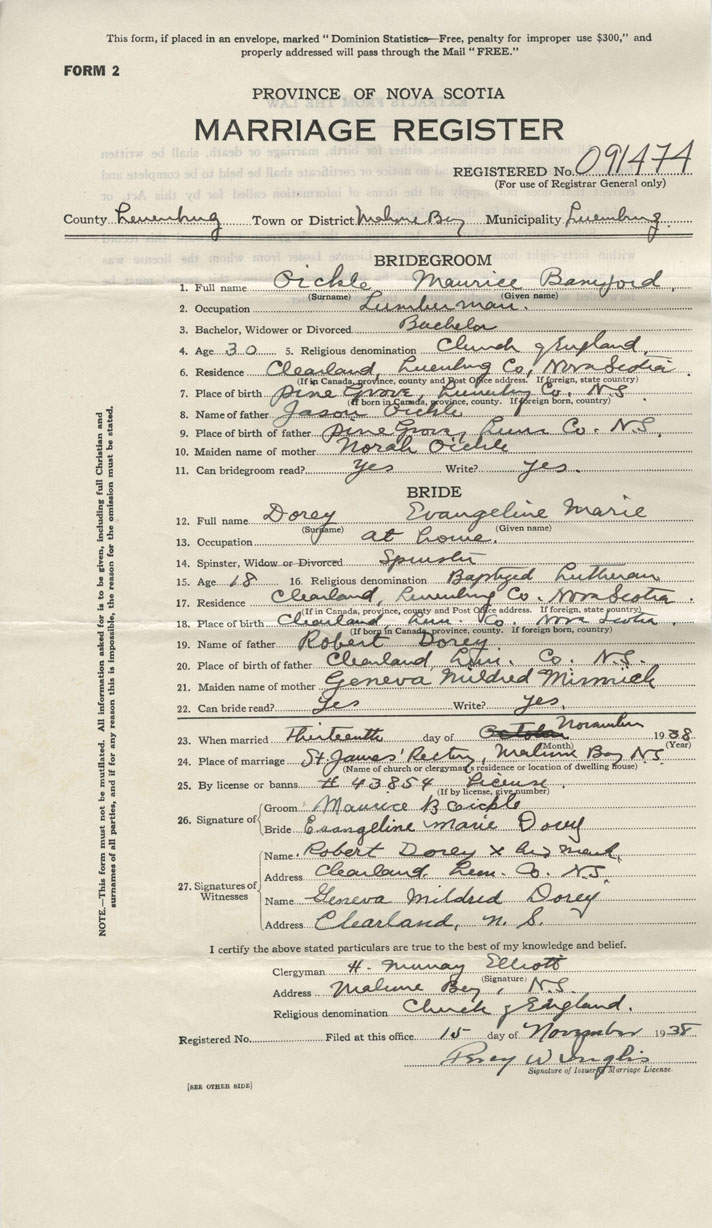 This form, if placed in an envelope, marked "Dominion Statistics—Free, penalty for improper use $300," and
properly addressed will pass through the Mail "FREE."
FORM 2
PROVINCE OF NOVA SCOTIA
MARRIAGE REGISTER
REGISTERED No. 091474
(For use of Registrar General only)
County Lunenburg Town or District Mahone Bay Municipality Lunenburg
BRIDEGROOM
1. Full name Oickle Maurice Bamford
(Surname) (Given name)
2. Occupation Lumberman.
3. Bachelor, Widower or Divorced Bachelor
4. Age 30 5. Religious denomination Church of England.
6. Residence Clearland, Lunenburg Co, Nova Scotia
(If in Canada, province, county and Post Office address. If foreign, state country)
7. Place of birth Pine Grove, Lunenburg Co. N.S.
(If born in Canada, province, county. If foreign born, country)
8. Name of father Jason Oickle
9. Place of birth of father Pine Grove, Lun. Co. N.S.
10. Maiden name of mother Norah Oickle
11. Can bridegroom read? Yes Write? Yes.
BRIDE
12. Full name Dorey Evangeline Marie
(Surname) (Given name)
13. Occupation at home.
14. Spinster, Widow or Divorced Spinster
15. Age 18 16. Religious denomination Baptized Lutheran
17. Residence Clearland, Lunenburg Co. Nova Scotia
(If in Canada, province, county and Post Office address. If foreign, state country)
18. Place of birth Clearland, Lun. Co. Nova Scotia
(If born in Canada, province, county. If foreign born, country)
19. Name of father Robert Dorey
20. Place of birth of father Clearland, Lun. Co. N.S.
21. Maiden name of mother Geneva Mildred
22. Can bride read? Yes Write? Yes.
23. When married Thirteenth day of October November 1938
(Month) (Year)
24. Place of marriage St. James' Rectory, Mahone Bay N.S.
(Name of church or clergyman's residence or location of dwelling house)
25. By license or banns # 43854 License
(If by license, give number)
26. Signature of
Groom Maurice B Oickle
Bride Evangeline Marie Dorey
27. Signatures of Witnesses
Name Robert Dorey X his mark
Address Clearland Lun. Co. N.S.
Name Geneva Mildred Dorey
Address Clearland, N. S.
I certify the above stated particulars are true to the best of my knowledge and belief.
Clergyman H. Murray Elliott
(Signature)
Address Mahone Bay, N.S.
Religious denomination Church of England.
Registered No. Filed at this office 15 day of November 1938
Percy W Inglis
Signature of Issuer of Marriage License.
[SEE OTHER SIDE]
NOTE.—This form must not be mutilated. All information asked for is to be given, including full Christian and
surnames of all parties, and if for any reason this is impossible, the reason for the omission must be stated.